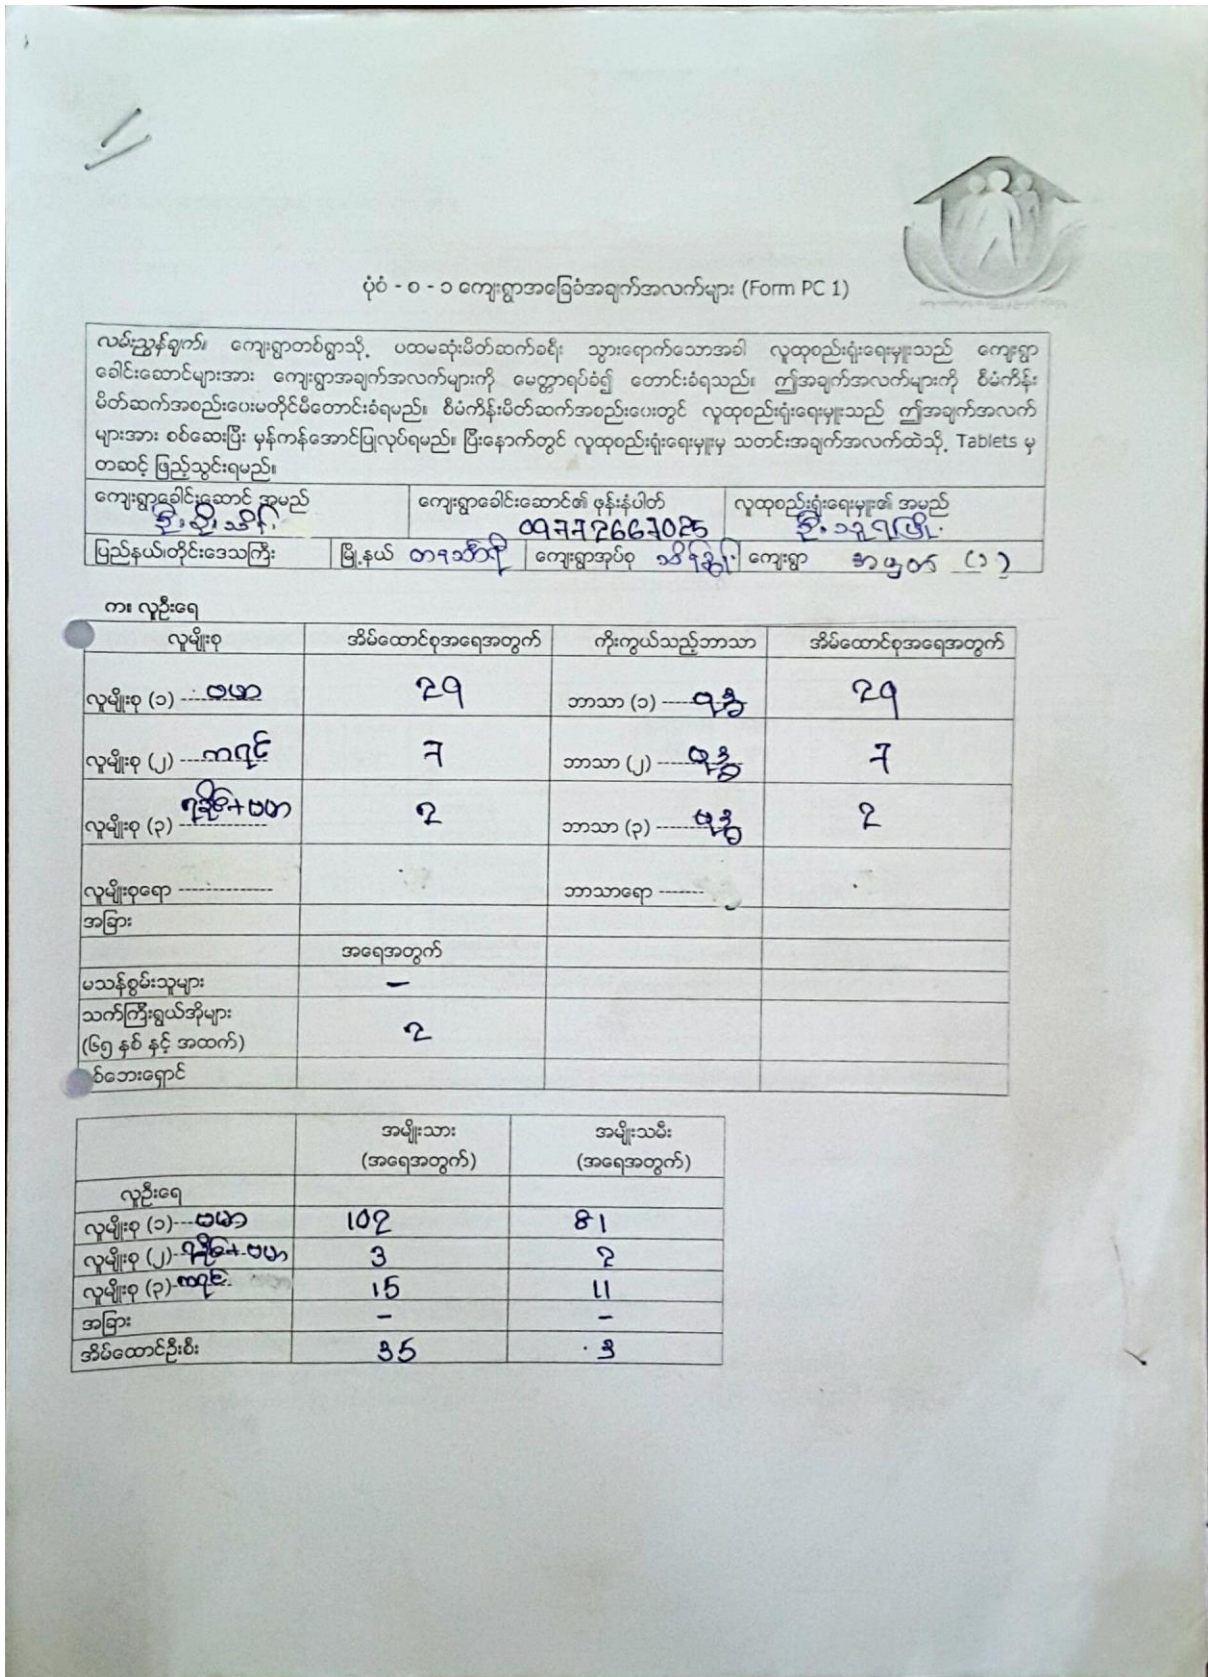 ပုံစံ - စ - ၁ ကျေးရွာအခြေခံအချက်အလက်များ (Form PC 1)
လမ်းညွှန်ချက်။ ကျေးရွာတစ်ရွာသို့ ပထမဆုံးမိတ်ဆက်ခရီး သွားရောက်သောအခါ လူထုစည်းရုံးရေးမှူးသည် ကျေးရွာ
ခေါင်းဆောင်များအား ကျေးရွာအချက်အလက်များကို မေတ္တာရပ်ခံ၍ တောင်းခံရသည်။ ဤအချက်အလက်များကို စီမံကိန်း
မိတ်ဆက်အစည်းဝေးမတိုင်မီတောင်းခံရမည်။ စီမံကိန်းမိတ်ဆက်အစည်းဝေးတွင် လူထုစည်းရုံးရေးမှူးသည် ဤအချက်အလက်
များအား စစ်ဆေးပြီး မှန်ကန်အောင်ပြုလုပ်ရမည်။ ပြီးနောက်တွင် လူထုစည်းရုံးရေးမှူးမှ သတင်းအချက်အလက်ထဲသို့ Tablets မှ
တဆင့် ဖြည့်သွင်းရမည်။
ကျေးရွာခေါင်းဆောင် အမည် ကျေးရွာခေါင်းဆောင်၏ ဖုန်းနံပါတ် လူထုစည်းရုံးရေးမှူး၏ အမည်
ဦးစိုးသိန်း 09772667025 ဦး
ပြည်နယ်၊တိုင်းဒေသကြီး မြို့နယ် တနင်္သာရီ ကျေးရွာအုပ်စု ကျေးရွာ (၁)
က။ လူဦးရေ
လူမျိုးစု အိမ်ထောင်စုအရေအတွက် ကိုးကွယ်သည့်ဘာသာ အိမ်ထောင်စုအရေအတွက်
လူမျိုးစု (၁) ဗမာ 29 ဘာသာ (၁) ဗုဒ္ဓ 29
လူမျိုးစု (၂) ကရင် 7 ဘာသာ (၂) ဗုဒ္ဓ 7
လူမျိုးစု (၃) ရခိုင်+ဗမာ 2 ဘာသာ (၃) ဗုဒ္ဓ 2
လူမျိုးစုရော -------------- ဘာသာရော -------
အခြား
အရေအတွက်
မသန်စွမ်းသူများ –
သက်ကြီးရွယ်အိုများ
(၆၅ နှစ် နှင့် အထက်) 2
စ်ဘေးရှောင်
အမျိုးသား အမျိုးသမီး
(အရေအတွက်) (အရေအတွက်)
လူဦးရေ
လူမျိုးစု (၁) ဗမာ 102 81
လူမျိုးစု (၂) ရခိုင်+ဗမာ 3 2
လူမျိုးစု (၃) ကရင် 15 11
အခြား – –
အိမ်ထောင်ဦးစီး 35 3